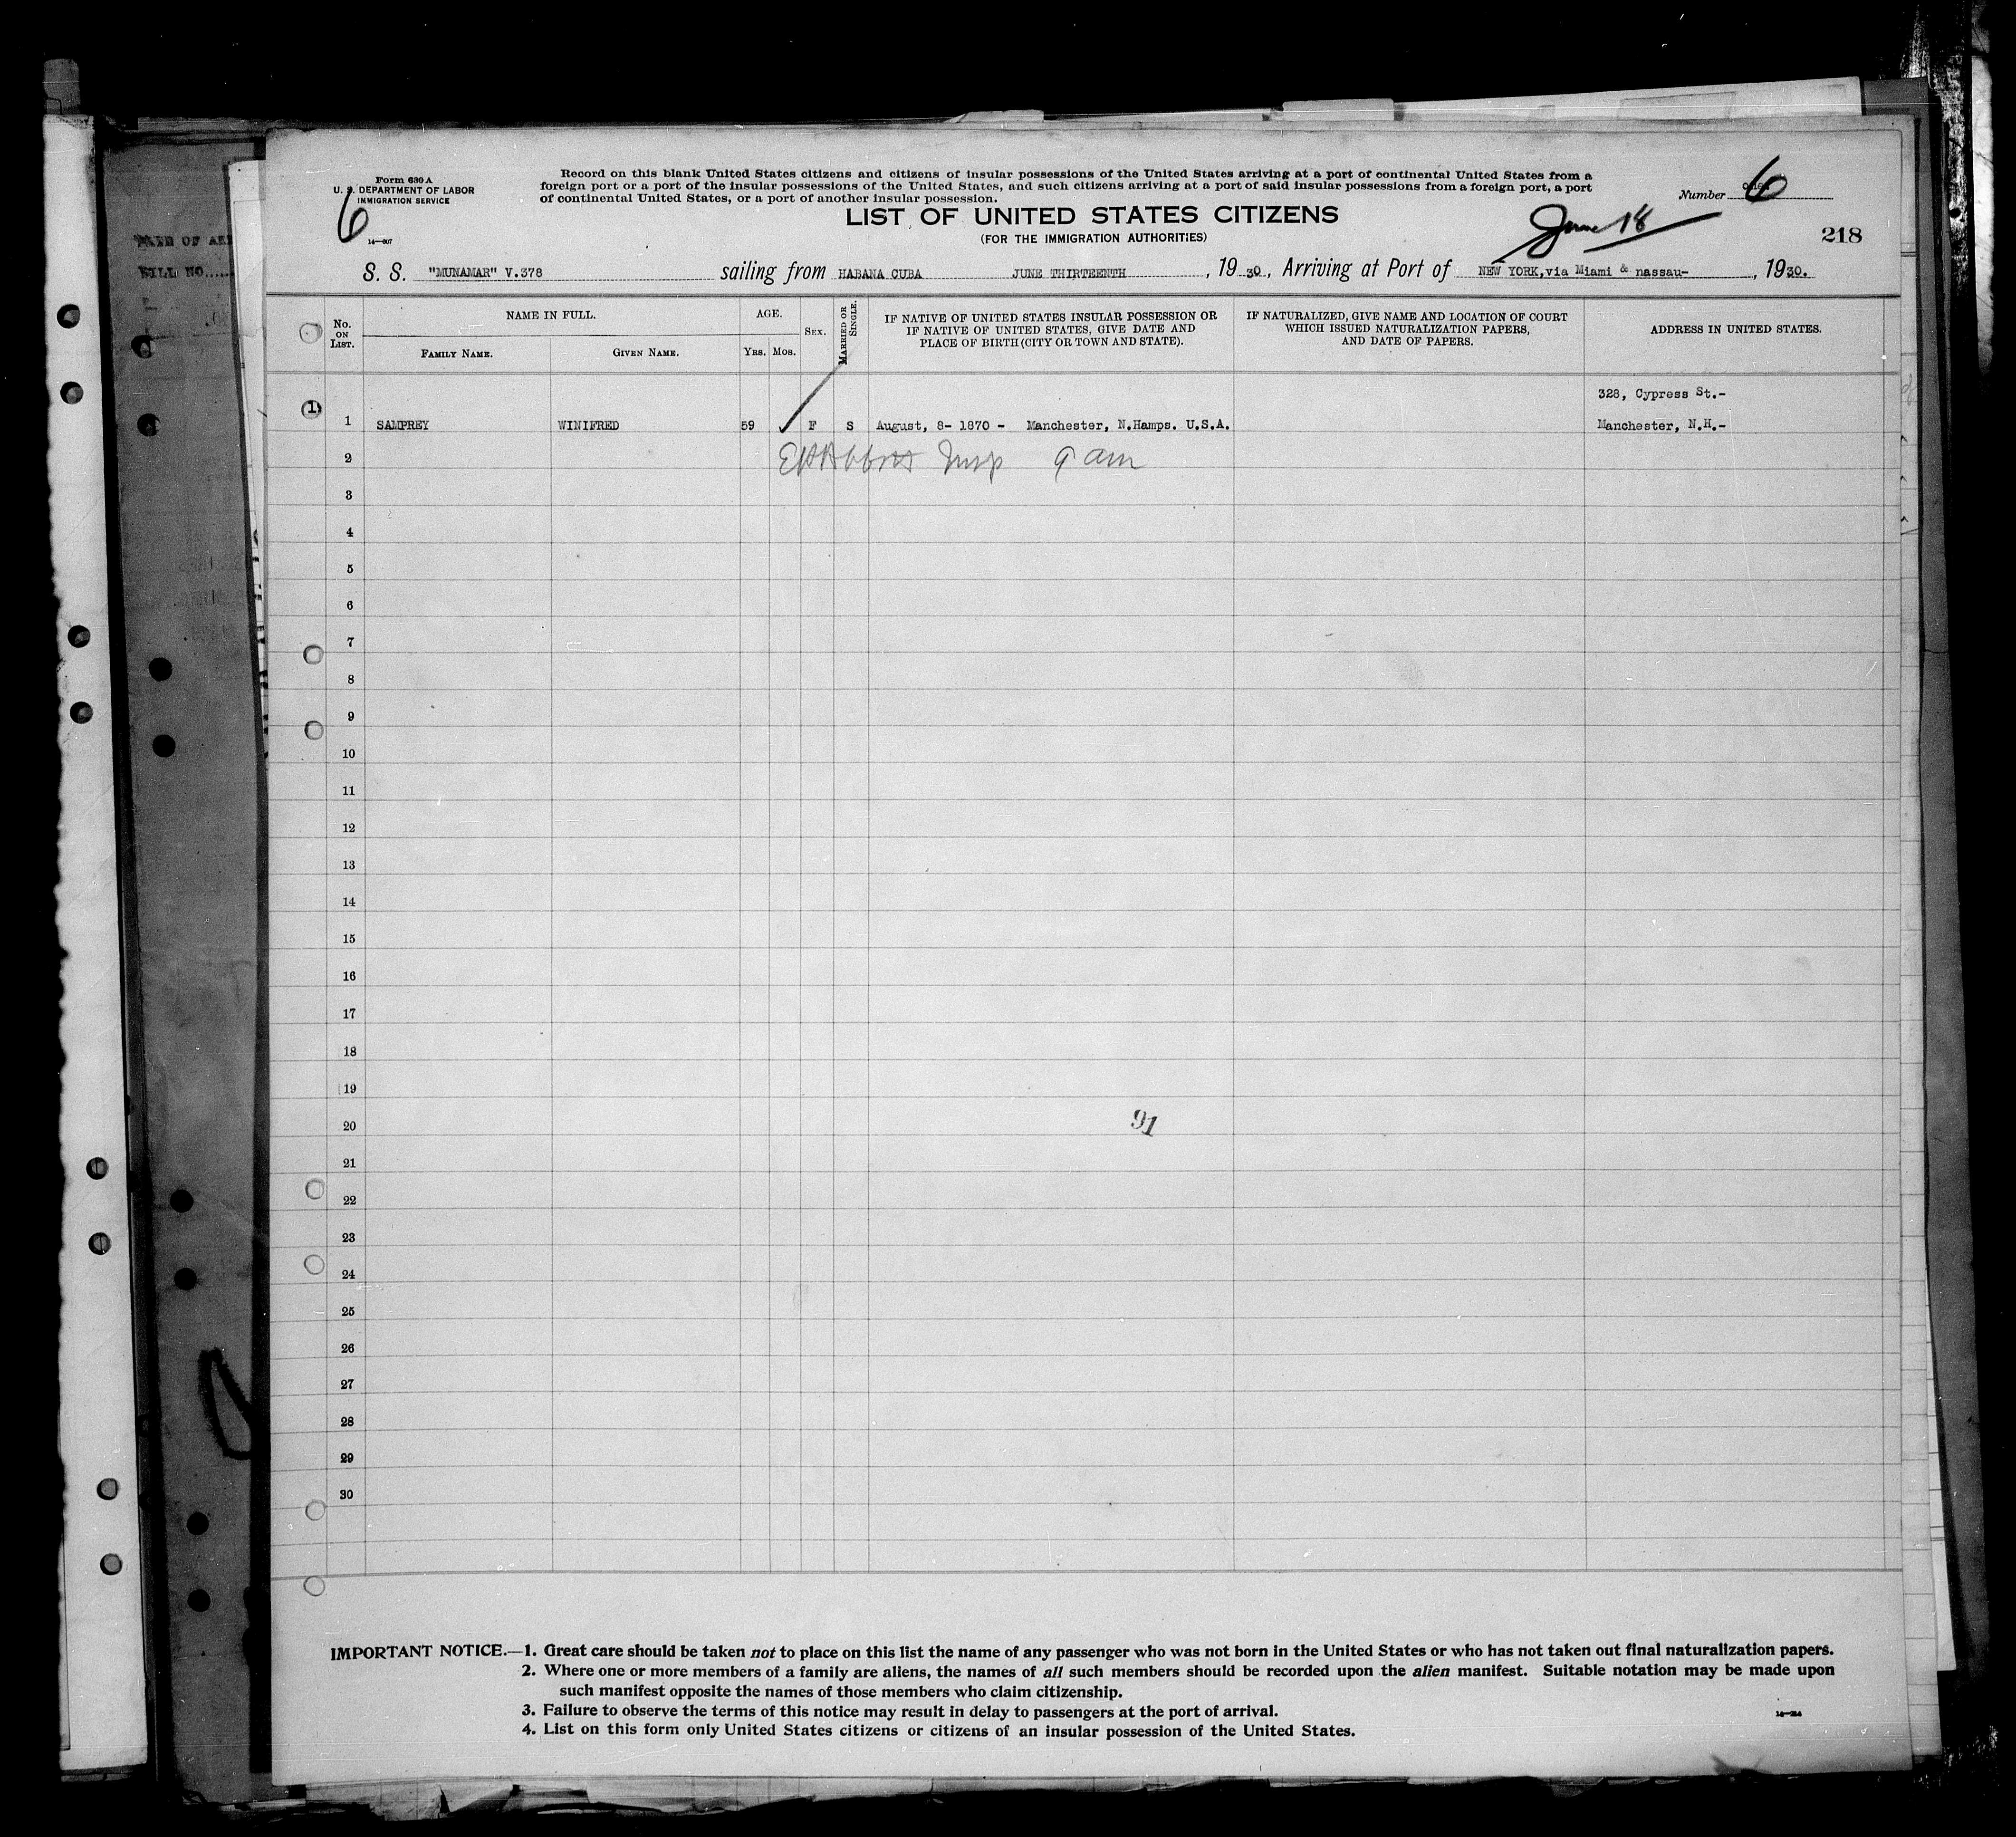 Form 630 A
U. S. DEPARTMENT OF LABOR
IMMIGRATION SERVICE
6
Record on this blank United States citizens and citizens of insular possessions of the United States arriving at a port of continental United States from a
foreign port or a port of the insular possessions of the United States, and such citizens arriving at a port of said insular possessions from a foreign port, a port
of continental United States, or a port of another insular possession.
Number 6
LIST OF UNITED STATES CITIZENS
(FOR THE IMMIGRATION AUTHORITIES)
June 18
218
S. S. "MUNAMAR" V.378 sailing from HABANA CUBA JUNE THIRTEENTH, 1930, Arriving at Port of NEW YORK,via Miami & nassau-, 1930.
No. ON LIST.
NAME IN FULL.
FAMILY NAME.
GIVEN NAME.
AGE.
YRS. MOS.
SEX.
MARRIED OR SINGLE.
IF NATIVE OF UNITED STATES INSULAR POSSESSION OR
IF NATIVE OF UNITED STATES, GIVE DATE AND
PLACE OF BIRTH (CITY OR TOWN AND STATE).
IF NATURALIZED, GIVE NAME AND LOCATION OF COURT
WHICH ISSUED NATURALIZATION PAPERS,
AND DATE OF PAPERS.
ADDRESS IN UNITED STATES.
328, Cypress St.-
1 1 SAMPREY WINIFRED 59 F S August, 8- 1870 - Manchester, N.Hamps. U.S.A. Manchester, N.H.-
2 Insp 9 am
3
4
5
6
7
8
9
10
11
12
13
14
15
16
17
18
19
20 91
21
22
23
24
25
26
27
28
29
30
IMPORTANT NOTICE.—1. Great care should be taken not to place on this list the name of any passenger who was not born in the United States or who has not taken out final naturalization papers.
2. Where one or more members of a family are aliens, the names of all such members should be recorded upon the alien manifest. Suitable notation may be made upon
such manifest opposite the names of those members who claim citizenship.
3. Failure to observe the terms of this notice may result in delay to passengers at the port of arrival.
4. List on this form only United States citizens or citizens of an insular possession of the United States.